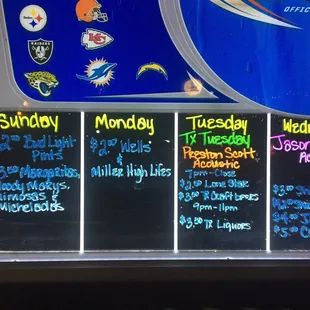 OFFICI
Sunday
2.00 Bud Light
Pints
3.00 Margaritas,
Bloody Marys,
Mimosas &
Micheladas
Monday
$2.00 Wells
&
Miller High Lifes
Tuesday
TX Tuesday
Preston Scott
Acoustic
7pm-Close
$2.50 Lone Star
$3.50 TX Draft beers
9pm-11pm
$3.50 TX Liquors
Wedn
Jason
Ac
$3.00
$4.00
$5.00